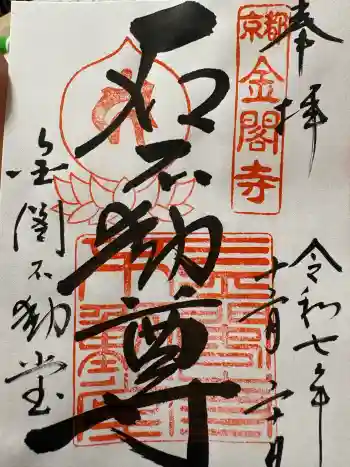 奉拝
京都
金閣寺
令和七年
十二月二十日
石不動尊
金閣不動堂